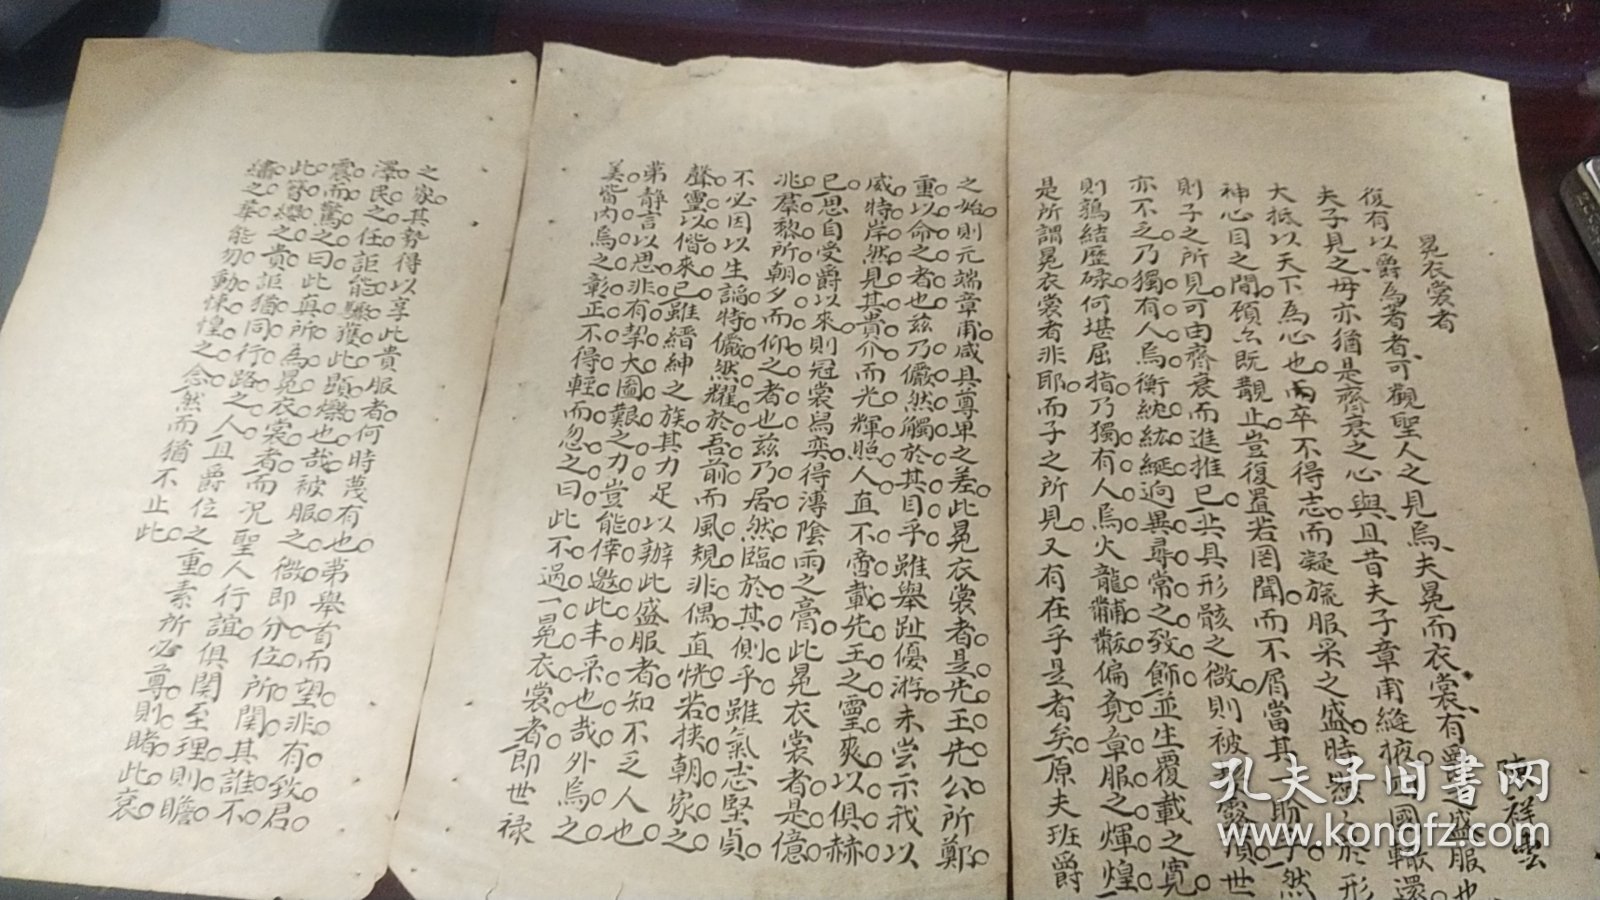 冕衣裳者
陳祥雲
復有以爵為著者可觀聖人之見焉夫冕而衣裳有爵之盛服也
夫子見之毋亦猶是齊衰之心與且昔夫子章甫縫掖四國轍還
大抵以天下為心也而卒不得志而凝旒服采之盛時於形
神心目之間頎么既覯止豈復置若罔聞而不屑當其一盼乎然
則子之所見可由齊衰而進推已共具形骸之微則被露頂世
亦不乏乃獨有人焉衡紞紘綖逈異尋常之致飾並生覆載之寬
則鶉結歷碌何堪屈指乃獨有人焉火龍黼黻偏竟章服之煇煌
是所謂冕衣裳者非耶而子之所見又有在乎是者矣原夫班爵
之始則元端章甫咸具尊卑之差此冕衣裳者是先王先公所鄭
重以命之者也茲乃儼然觸於其目乎雖舉趾優游未嘗示我以
威特岸然見其貴介而光輝照人直不啻載先王之靈爽以俱赫
已思自受爵以來則冠裳舄奕得溥陰雨之膏此冕衣裳者是億
兆羣黎所朝夕而仰之者也茲乃居然臨於其側乎雖氣志堅貞
不必因以生謟特儼然耀於吾前而風規非偶直恍若挾朝家之
聲靈以偕來已雖縉紳之族其力足以辦此盛服者知不乏人也
第靜言以思非有挐大圖艱之力豈能倖邀此丰采也哉外焉之
美皆內焉之彰正不得輕而忽之曰此不過一冕衣裳者即世禄
之家其勢得以享此貴服者何時蔑有也第舉首而望非有致君
澤民之任詎能驟獲此顯爍也哉被服之微即分位所關其誰不
震而驚之曰此真所為冕衣裳者而況聖人行誼俱関至理則瞻
此簪纓之貴詎猶同行路之人且爵位之重素所必尊則睹此衮
繡之華能勿動悚惶之念然而猶不止此
孔夫子旧书网
www.kongfz.com